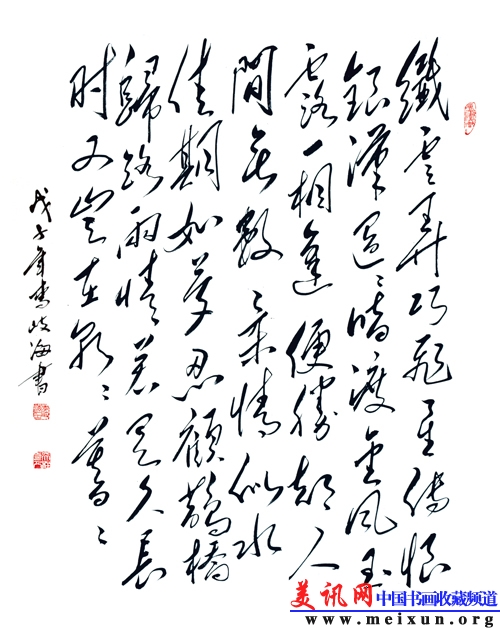 纖雲弄巧飛星傳恨
銀漢迢〻暗渡金風玉
露一相逢便勝却人
間無數〻柔情似水
佳期如夢忍顧鵲橋
歸路兩情若是久長
时又豈在朝〻暮〻
戊子年岐海書
美讯网 中国书画收藏频道
www.meixun.org